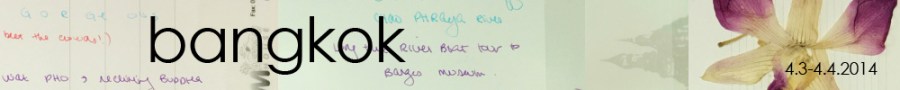 bangkok
Chao PHRaya River
beat the crowds!)
long tail River Boat tour to
Barges museum.
wat PHO , reclining BUDDHA
4.3-4.4.2014